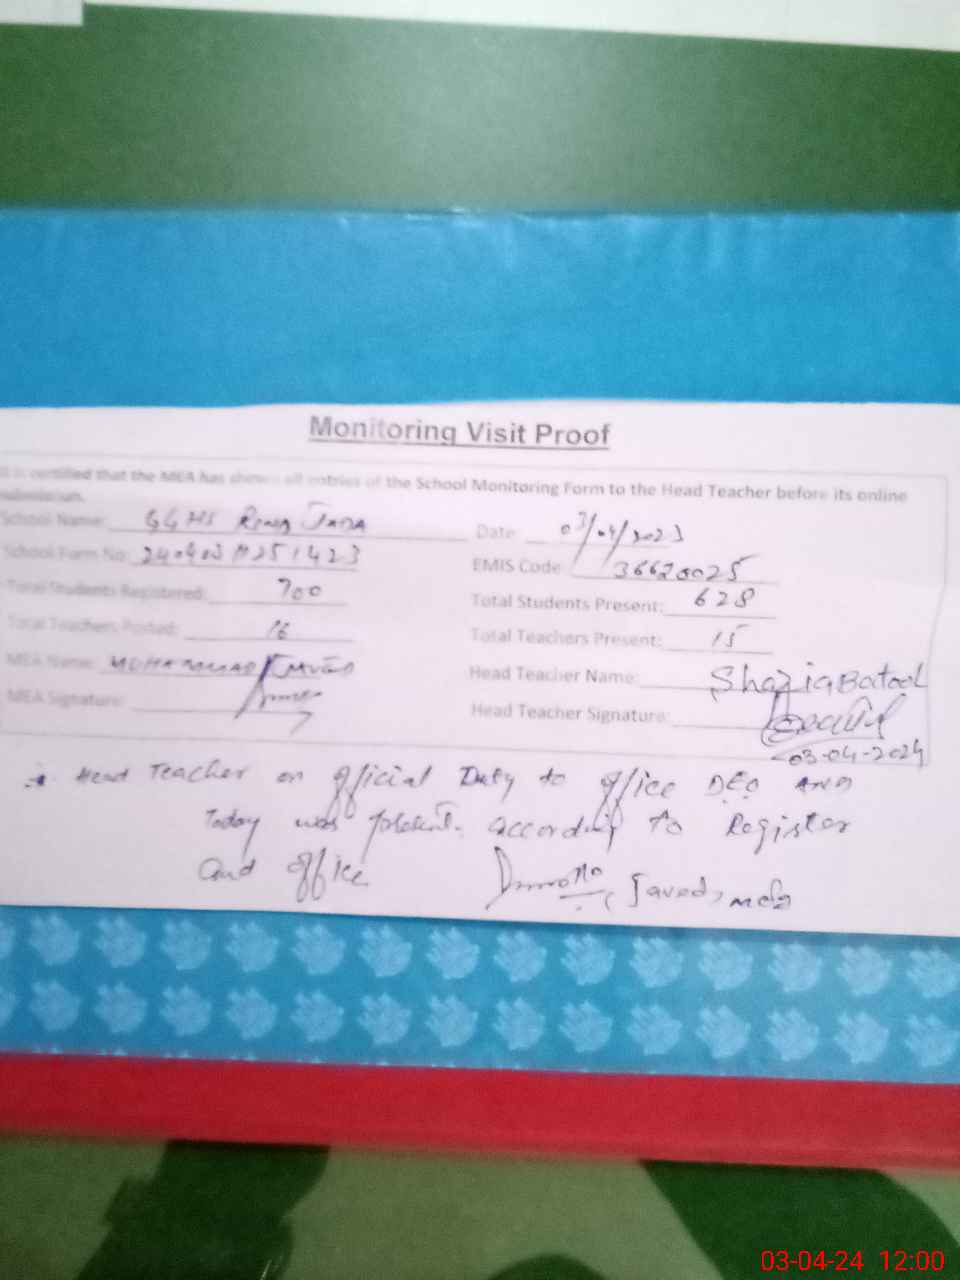 Monitoring Visit Proof
It is certified that the MEA has shown all entries of the School Monitoring Form to the Head Teacher before its online
submission.
School Name: GGHS
Date 03/04/2023
School Form No:
EMIS Code 36620025
Total Students Registered: 700
Total Students Present: 628
Total Teachers Posted: 16
Total Teachers Present: 15
MEA Name: MUHAMMAD JAVED
Head Teacher Name: Shazia Batool
MEA Signature:
Head Teacher Signature:
03-04-2024
Head Teacher on official Duty to office DEO AND
Today was present. according to Register
and office
Javed, mea
03-04-24 12:00